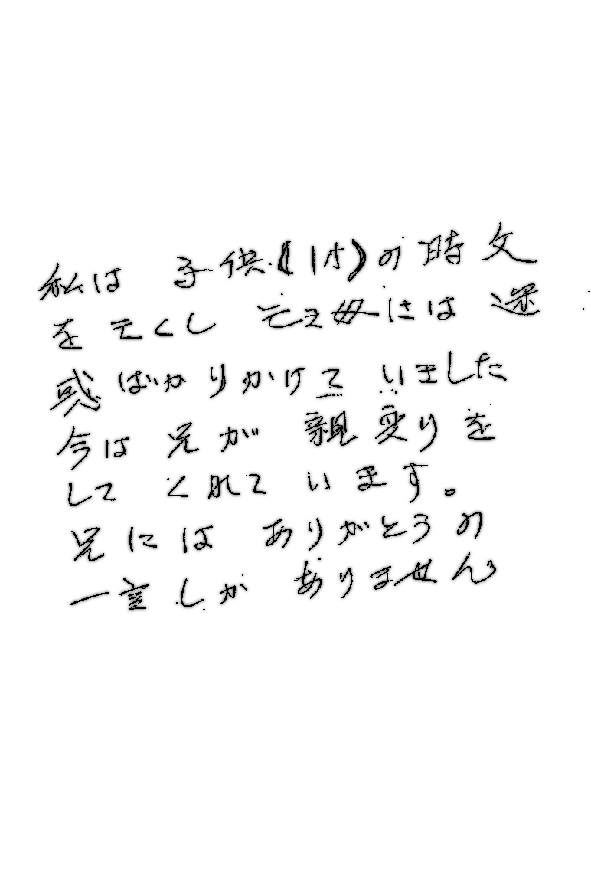 私は 子供(1才)の時父
を亡くし 亡き母には迷
惑ばかりかけて いました
今は兄が 親変りを
して くれて います。
兄には ありがとうの
一言しか ありません